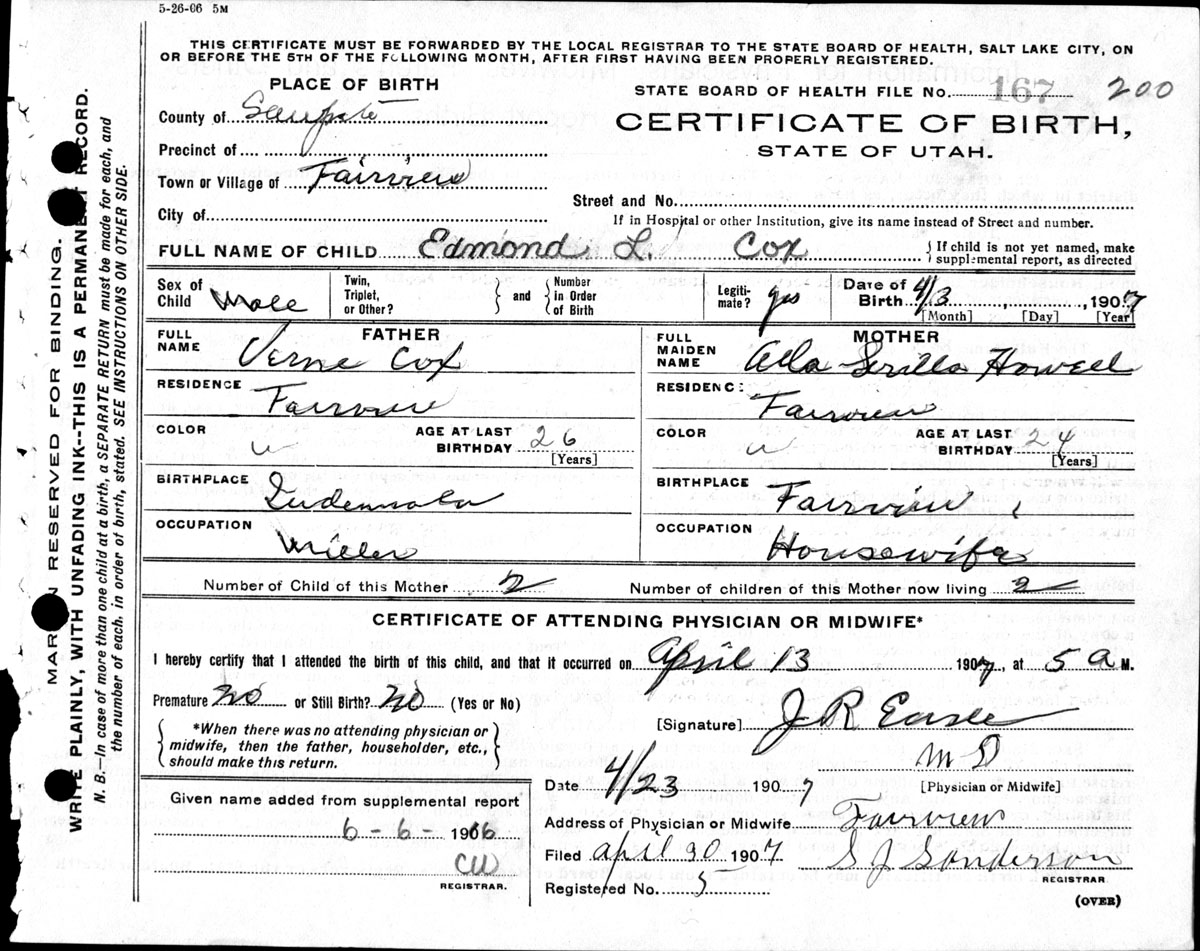 5-26-06 5M
THIS CERTIFICATE MUST BE FORWARDED BY THE LOCAL REGISTRAR TO THE STATE BOARD OF HEALTH, SALT LAKE CITY, ON
OR BEFORE THE 5TH OF THE FOLLOWING MONTH, AFTER FIRST HAVING BEEN PROPERLY REGISTERED.
PLACE OF BIRTH
STATE BOARD OF HEALTH FILE NO. 167 200
County of Sanpete
CERTIFICATE OF BIRTH,
STATE OF UTAH.
Precinct of
Town or Village of Fairview
Street and No.
City of
If in Hospital or other Institution, give its name instead of Street and number.
FULL NAME OF CHILD Edmond L. Cox
If child is not yet named, make
supplemental report, as directed
Sex of Child Male
Twin, Triplet, or Other?
and
Number in Order of Birth
Legitimate? yes
Date of Birth 4/13, 1907
[Month] [Day] [Year]
FATHER
FULL NAME Verne Cox
RESIDENCE Fairview
COLOR W
AGE AT LAST BIRTHDAY 26
[Years]
BIRTHPLACE
OCCUPATION Miller
MOTHER
FULL MAIDEN NAME Howell
RESIDENCE Fairview
COLOR W
AGE AT LAST BIRTHDAY 24
[Years]
BIRTHPLACE Fairview
OCCUPATION Housewife
Number of Child of this Mother 2
Number of children of this Mother now living 2
CERTIFICATE OF ATTENDING PHYSICIAN OR MIDWIFE*
I hereby certify that I attended the birth of this child, and that it occurred on April 13 1907, at 5 a M.
Premature No or Still Birth? No (Yes or No)
*When there was no attending physician or
midwife, then the father, householder, etc.,
should make this return.
[Signature] J R
M D
[Physician or Midwife]
Date 4/23 1907
Address of Physician or Midwife Fairview
Filed April 30 1907 S J Sanderson
REGISTRAR.
Registered No. 5
(OVER)
Given name added from supplemental report
6-6-1916
CW
REGISTRAR.
MARGIN RESERVED FOR BINDING.
WRITE PLAINLY, WITH UNFADING INK--THIS IS A PERMANENT RECORD.
N. B.—In case of more than one child at a birth, a SEPARATE RETURN must be made for each, and
the number of each, in order of birth, stated. SEE INSTRUCTIONS ON OTHER SIDE.